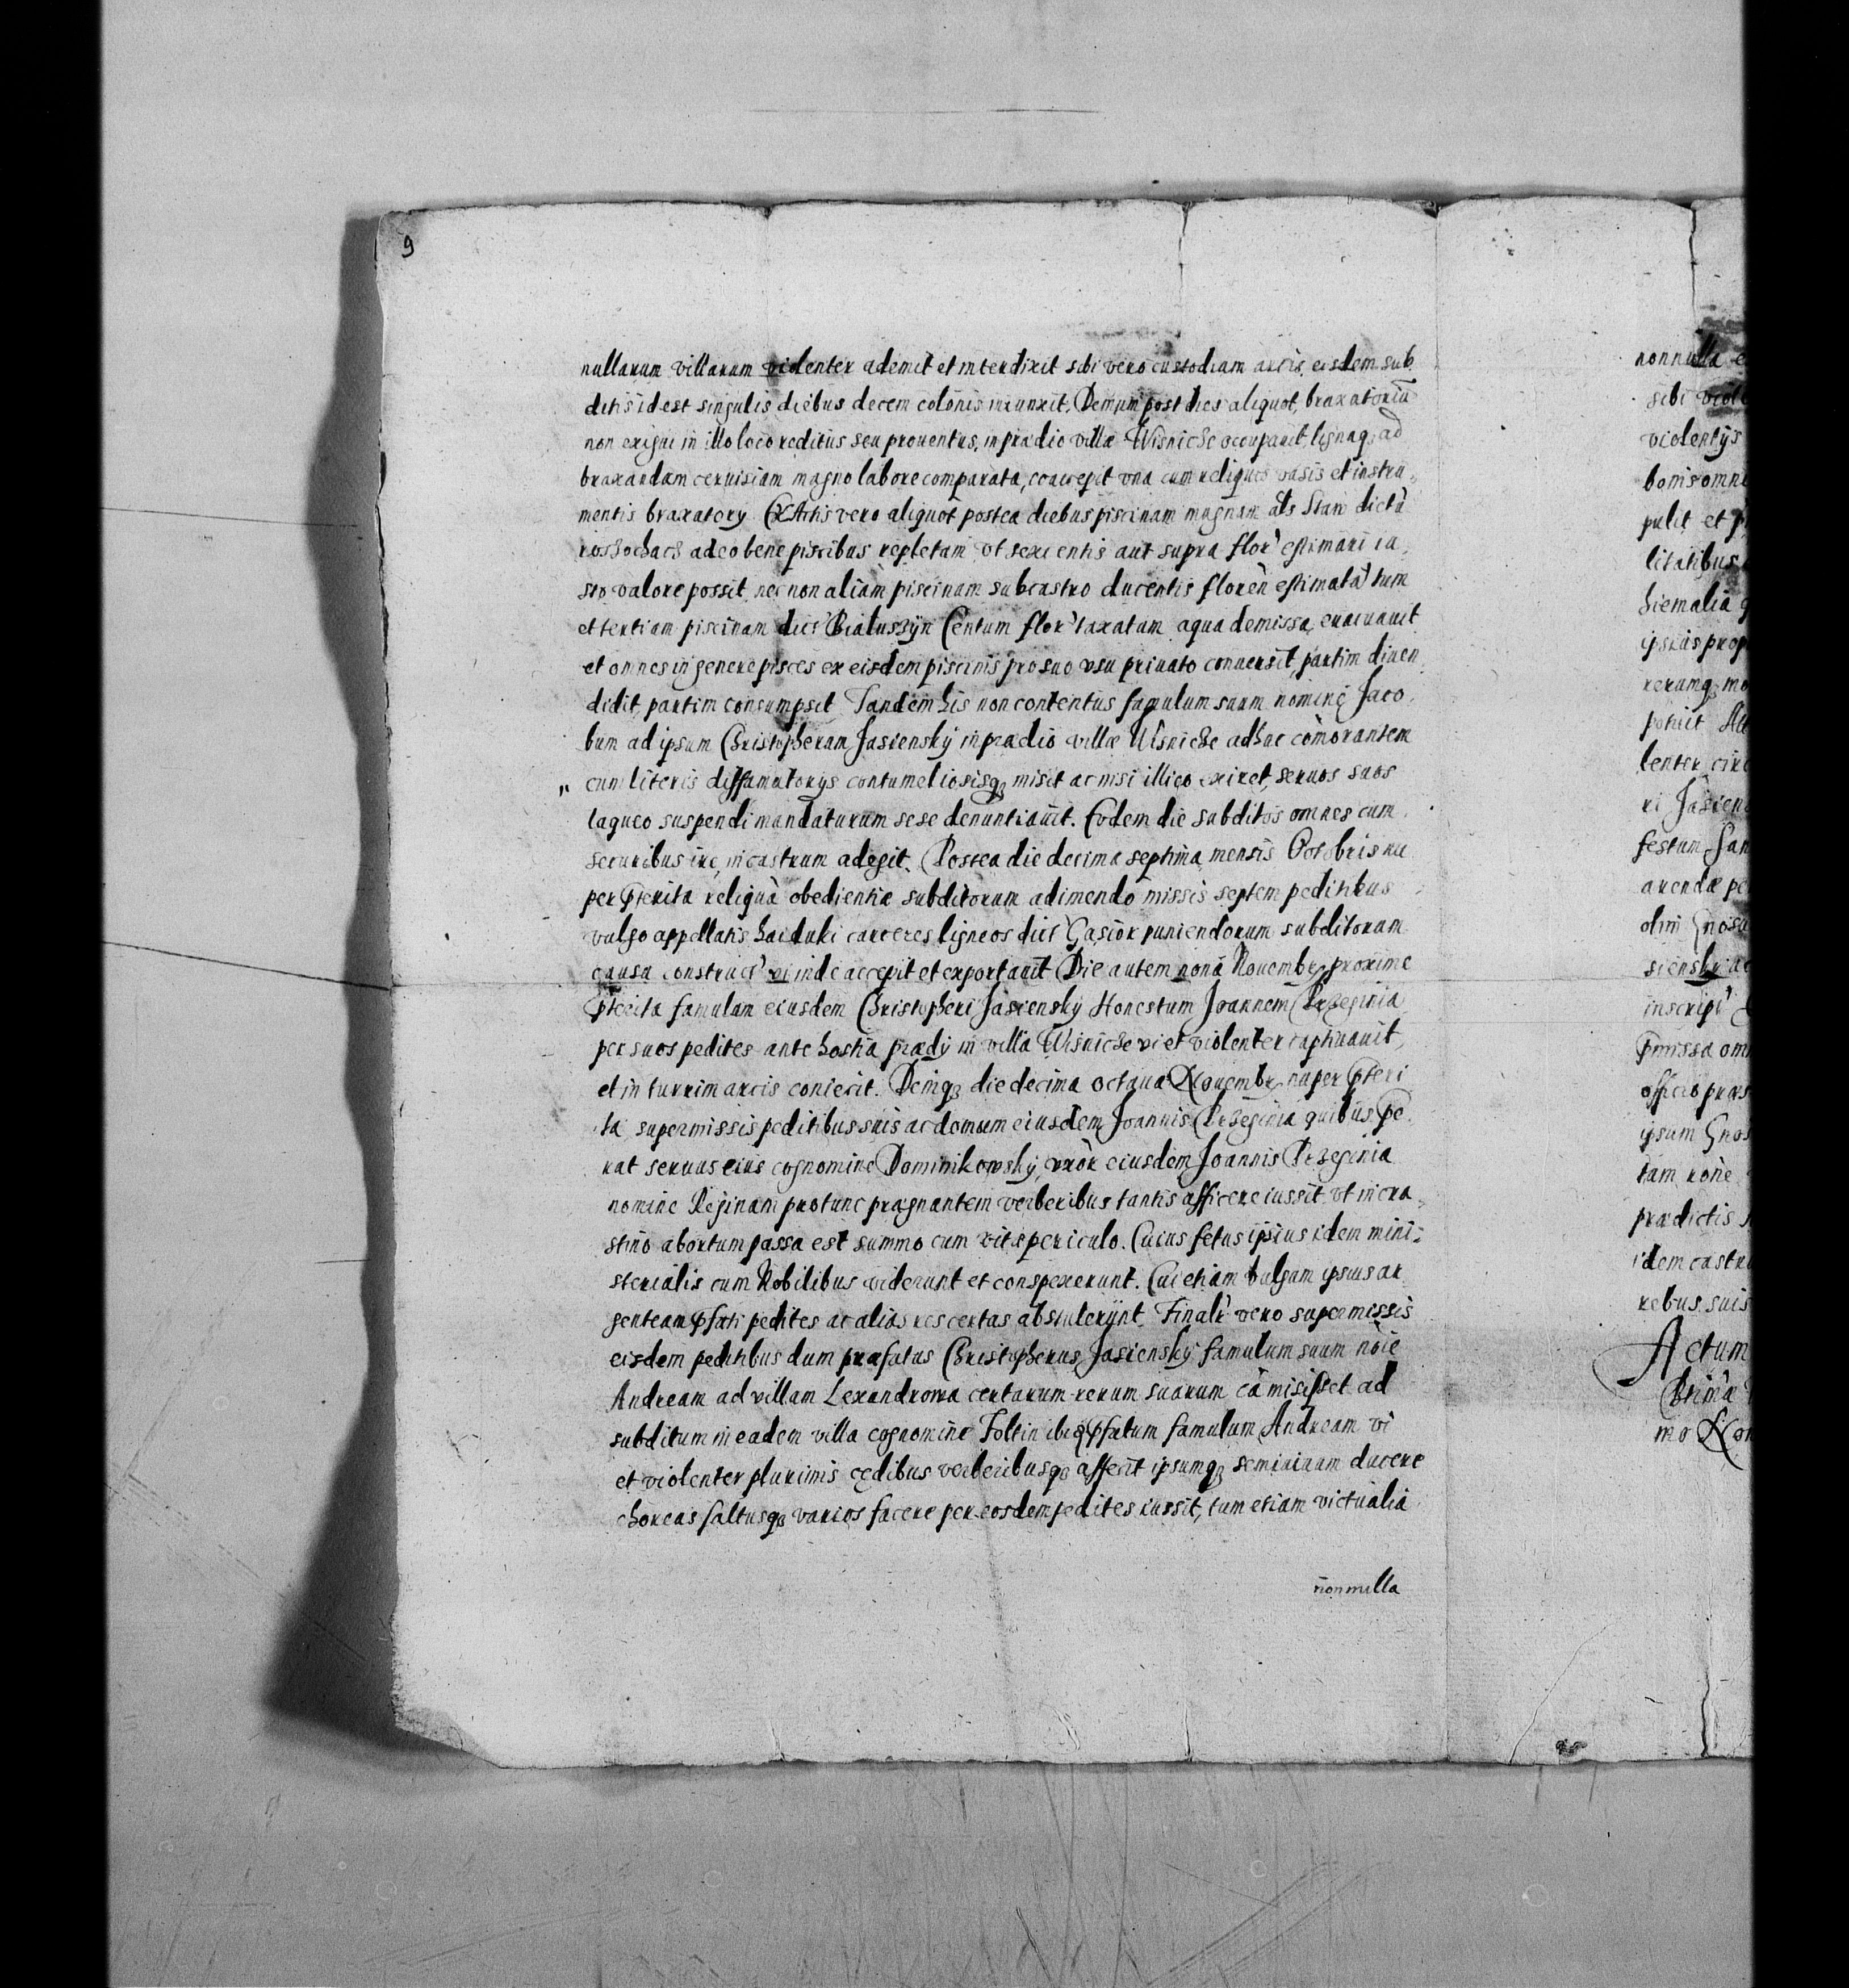 9
nullarum villarum violenter ademit et interdixit sibi vero custodiam arcis eisdem sub
ditis id est singulis diebus decem colonis iniunxit, Demum post dies aliquot, braxatoriũ
non exigui in illo loco reditus seu prouentus, in prædio villæ Wisniche occupauit lignaq3 ad
braxandam ceruisiam magno labore comparata, coaccepit vna cum reliquis vasis et instru,
mentis braxatorÿ Exactis vero aliquot postea diebus piscinam magnam als Staw dictã
rossochach adeo bene piscibus repletam vt sexcentis aut supra flor' estimari iu,
sto valore possit nec non aliam piscinam sub castro ducentis floren estimatã tum
et tertiam piscinam dict' Bialussÿn Centum flor' taxatam aqua demissa, euacuauit
et omnes in genere pisces ex eisdem piscinis pro suo vsu priuato conuersit, partim diuen
didit, partim consumpsit Tandem his non contentus famulum suum nomine Jaco,
bum ad ipsum Christopherum Jasienskÿ in prædio villæ Wisniche adhuc cõmorantem
„ cum literis diffamatorÿs contumeliosisq3 misit ac nisi illico exiret, seruos suos
laqueo suspendi mandaturum sese denuntiauit. Eodem die subditos omnes cum
securibus ire in castrum adegit. Postea die decima septima mensis Octobris nu
per p̃terita reliquã obedientiæ subditorum adimendo missis septem peditibus
vulgo appellatis haiduki carceres ligneos dict' Gasior puniendorum subditorum
causa construct' vi inde accepit et exportauit Die autem nona Nouembr proxime
p̃terita famulum eiusdem Christopheri Jasienskÿ Honestum Joannem Przeginia
per suos pedites ante hostia prædÿ in villa Wisniche vi et violenter captiuauit,
et in turrim arcis coniecit. Deniq3 die decima octaua Nouembr nuper p̃teri
ta supermissis peditibus suis ac domum eiusdem Joannis Przeginia quibus p̃e,
rat seruus eius cognomine Dominikowskÿ, vxor eiusdem Joannis Przeginia
nomine Reginam pro tunc prægnantem verberibus tantis afficere iussit vt in cra,
stino abortum passa est summo cum vitæ periculo. Cuius fetus ipsius idem mini:
sterialis cum Nobilibus viderunt et conspexerunt. Cui etiam bulgam ipsius ar
genteam p̃fati pedites ac alias res certas abstulerunt. Finalr' vero supermissis
eisdem peditibus dum præfatus Christopherus Jasienskÿ famulum suum nõie
Andream ad villam Lexandrowa certarum rerum suarum cã misisset ad
subditum in eadem villa cognomine Foltin ibiq3 p̃fatum famulum Andream vi
et violenter plurimis cędibus verberibusq3 affecit ipsumq3 seminiuum ducere
choreas saltusq3 varios facere per eosdem pedites iussit, tum etiam victualia
nonnulla
nonnulla
sibi
violentÿs
bonis omni
pulit et
litatibus
hiemalia
ipsius prop
rerumq3 mo
potuit
lenter
ri Jasien
festum San
arendæ pe
olim Gnosu
sienskÿ ac
inscript'
p̃missa om
officio præs
ipsum Gnos
tam rõne
prædictis
idem castr
rebus suis
Actum
mo Non